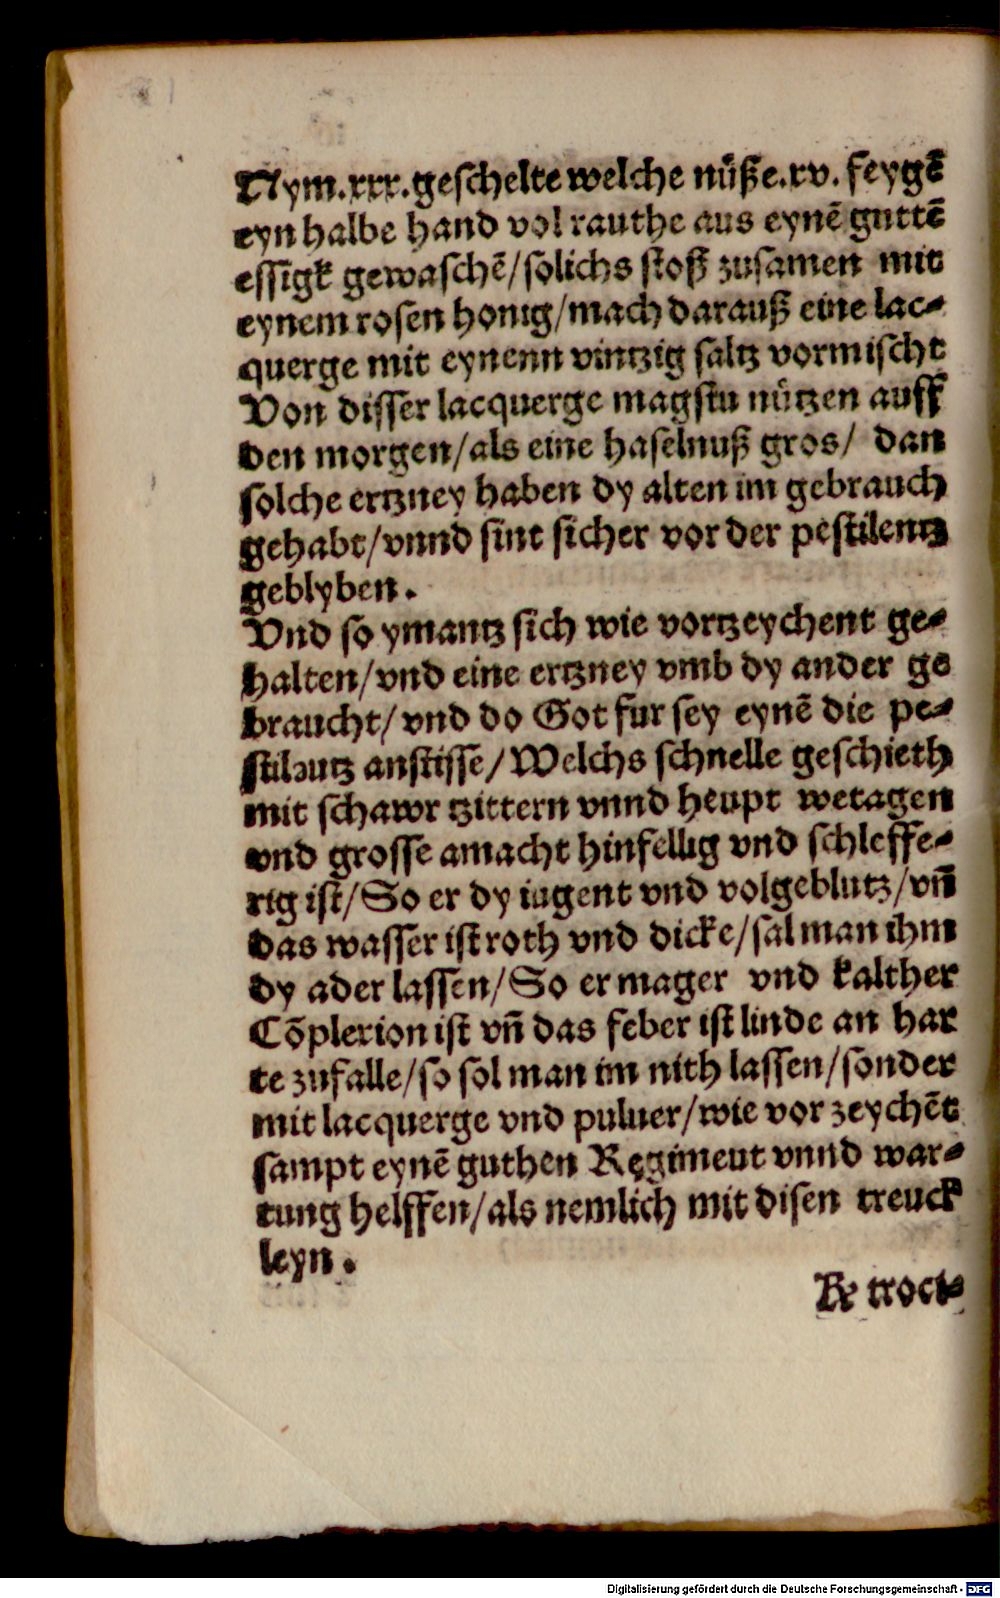 Nym.xxx.geschelte welche nüße.xv. feygē
eyn halbe hand vol rauthe aus eynē guttē
essigk gewaschē/solichs stoß zusamen mit
eynem rosen honig/mach darauß eine lac-
querge mit eynenn vintzig saltz vormischt
Von disser lacquerge magstu nützen auff
den morgen/als eine haselnuß gros/ dan
solche ertzney haben dy alten im gebrauch
gehabt/vnnd sint sicher vor der pestilentz
geblyben.
Vnd so ymantz sich wie vortzeychent ge-
halten/vnd eine ertzney vmb dy ander ge
braucht/vnd do Got fur sey eynē die pe-
stilentz anstisse/Welchs schnelle geschieth
mit schawr tzittern vnnd heupt wetagen
vnd grosse amacht hinfellig vnd schleffe-
rig ist/So er dy iugent vnd volgeblutz/vñ
das wasser ist roth vnd dicke/sal man ihm
dy ader lassen/So er mager vnd kalther
Cōplexion ist vñ das feber ist linde an har
te zufalle/so sol man im nith lassen/sonder
mit lacquerge vnd puluer/wie vor zeychēt
sampt eynē guthen Regiment vnnd war-
tung helffen/als nemlich mit disen treuck
leyn.
℞ troci-
Digitalisierung gefördert durch die Deutsche Forschungsgemeinschaft - DFG